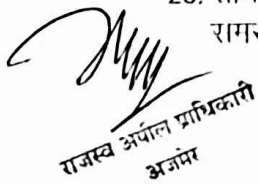 रामस
राजस्व अपील प्राधिकारी
अजमेर